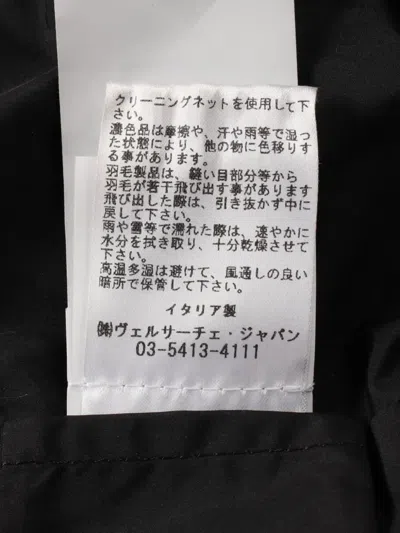 クリーニングネットを使用して下
さい。
濃色品は摩擦や、汗や雨等で湿っ
た状態により、他の物に色移りす
る事があります。
羽毛製品は、縫い目部分等から
羽毛が若干飛び出す事があります
飛び出した際は、引き抜かず中に
戻して下さい。
雨や雪等で濡れた際は、速やかに
水分を拭き取り、十分乾燥させて
下さい。
高温多湿は避けて、風通しの良い
暗所で保管して下さい。
イタリア製
㈱ヴェルサーチェ・ジャパン
03-5413-4111